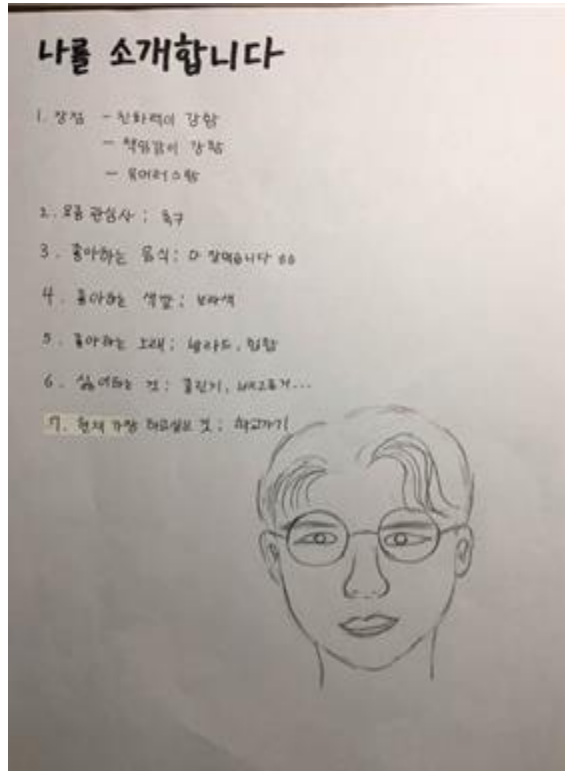 나를 소개합니다
1. 장점 - 친화력이 강함
- 책임감이 강함
- 유머러스함
2. 요즘 관심사 ; 축구
3. 좋아하는 음식 ; 다 잘먹습니다
4. 좋아하는 색깔 ; 보라색
5. 좋아하는 노래 ; 발라드, 힙합
6. 싫어하는 것 ; 배고프거...
7. 현재 가장 하고싶은 것 ; 학교가기